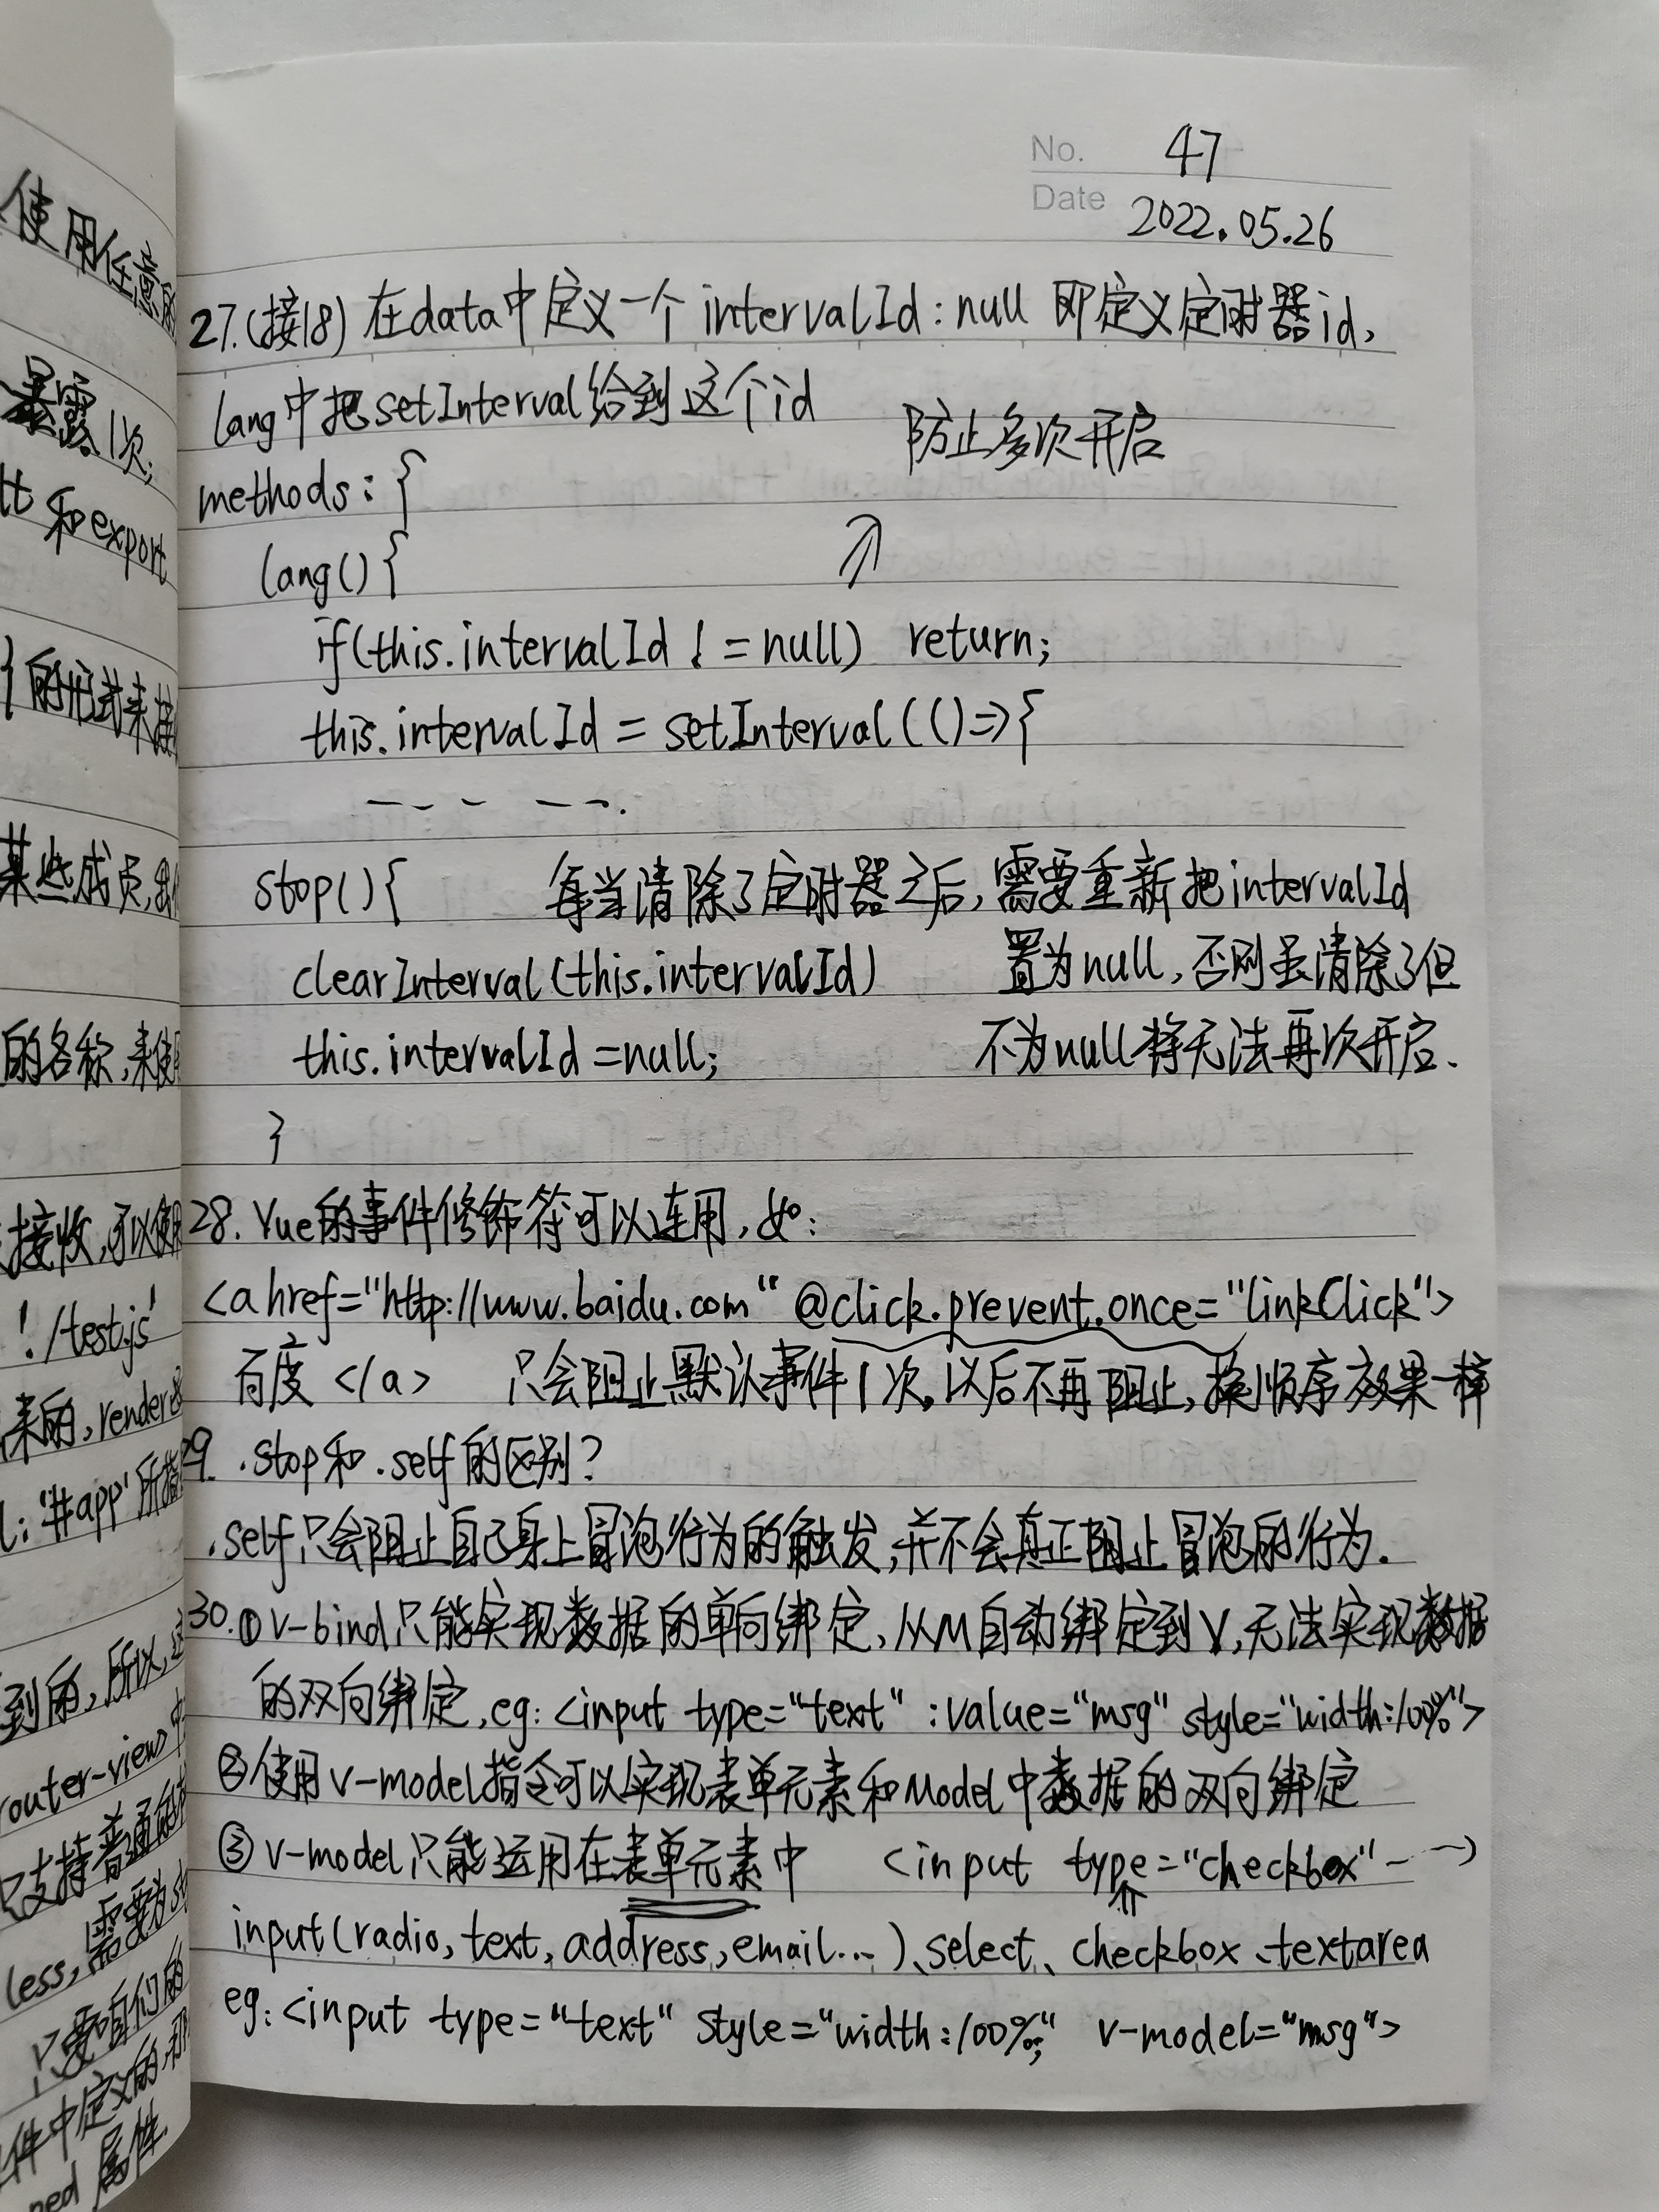 使用任意
暴露1次;
和export
的形式来接
某些成员,
的名称,来使
接收,可以使用
'./test.js'
来的,render
:'#app'所指
到的,所以,这
router-view中
只支持普通的
less,需要为
只要自们的
件中定义的,那
属性.
No. 47
Date 2022.05.26
27.(接18) 在data中定义一个 intervalId:null 即定义定时器id,
lang中把setInterval给到这个id
防止多次开启
methods:{
lang(){
if(this.intervalId != null) return;
this.intervalId = setInterval(()=>{
stop(){ 每当清除了定时器之后,需要重新把intervalId
clearInterval(this.intervalId) 置为null,否则虽清除了但
this.intervalId =null; 不为null将无法再次开启.
}
28. Vue的事件修饰符可以连用,如:
<a href="http://www.baidu.com“ @click.prevent.once="linkClick">
百度 </a> 只会阻止默认事件1次,以后不再阻止,换顺序效果一样
29. .stop和 .self的区别?
.self只会阻止自己身上冒泡行为的触发,并不会真正阻止冒泡的行为.
30.①v-bind只能实现数据的单向绑定,从M自动绑定到V,无法实现数据
的双向绑定,eg:<input type="text" :value="msg" style="width:100%">
②使用v-model指令可以实现表单元素和Model中数据的双向绑定
③v-model只能运用在表单元素中 <input type="checkbox"---->
input(radio,text,address,email...)、select、checkbox、textarea
eg:<input type="text" style="width:100%;" v-model="msg">